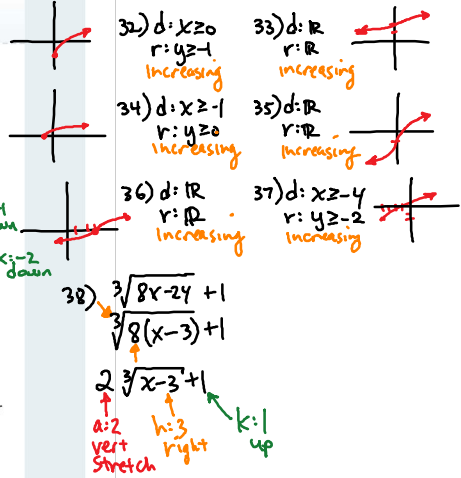 32) d: x≥0
r: y≥-1
increasing
33) d: ℝ
r: ℝ
increasing
34) d: x≥-1
r: y≥0
increasing
35) d: ℝ
r: ℝ
increasing
36) d: ℝ
r: ℝ
increasing
37) d: x≥-4
r: y≥-2
increasing
k:-2
down
38) ∛(8x-24) +1
∛(8(x-3)) +1
2 ∛(x-3) +1
a:2
vert
stretch
h:3
right
k:1
up